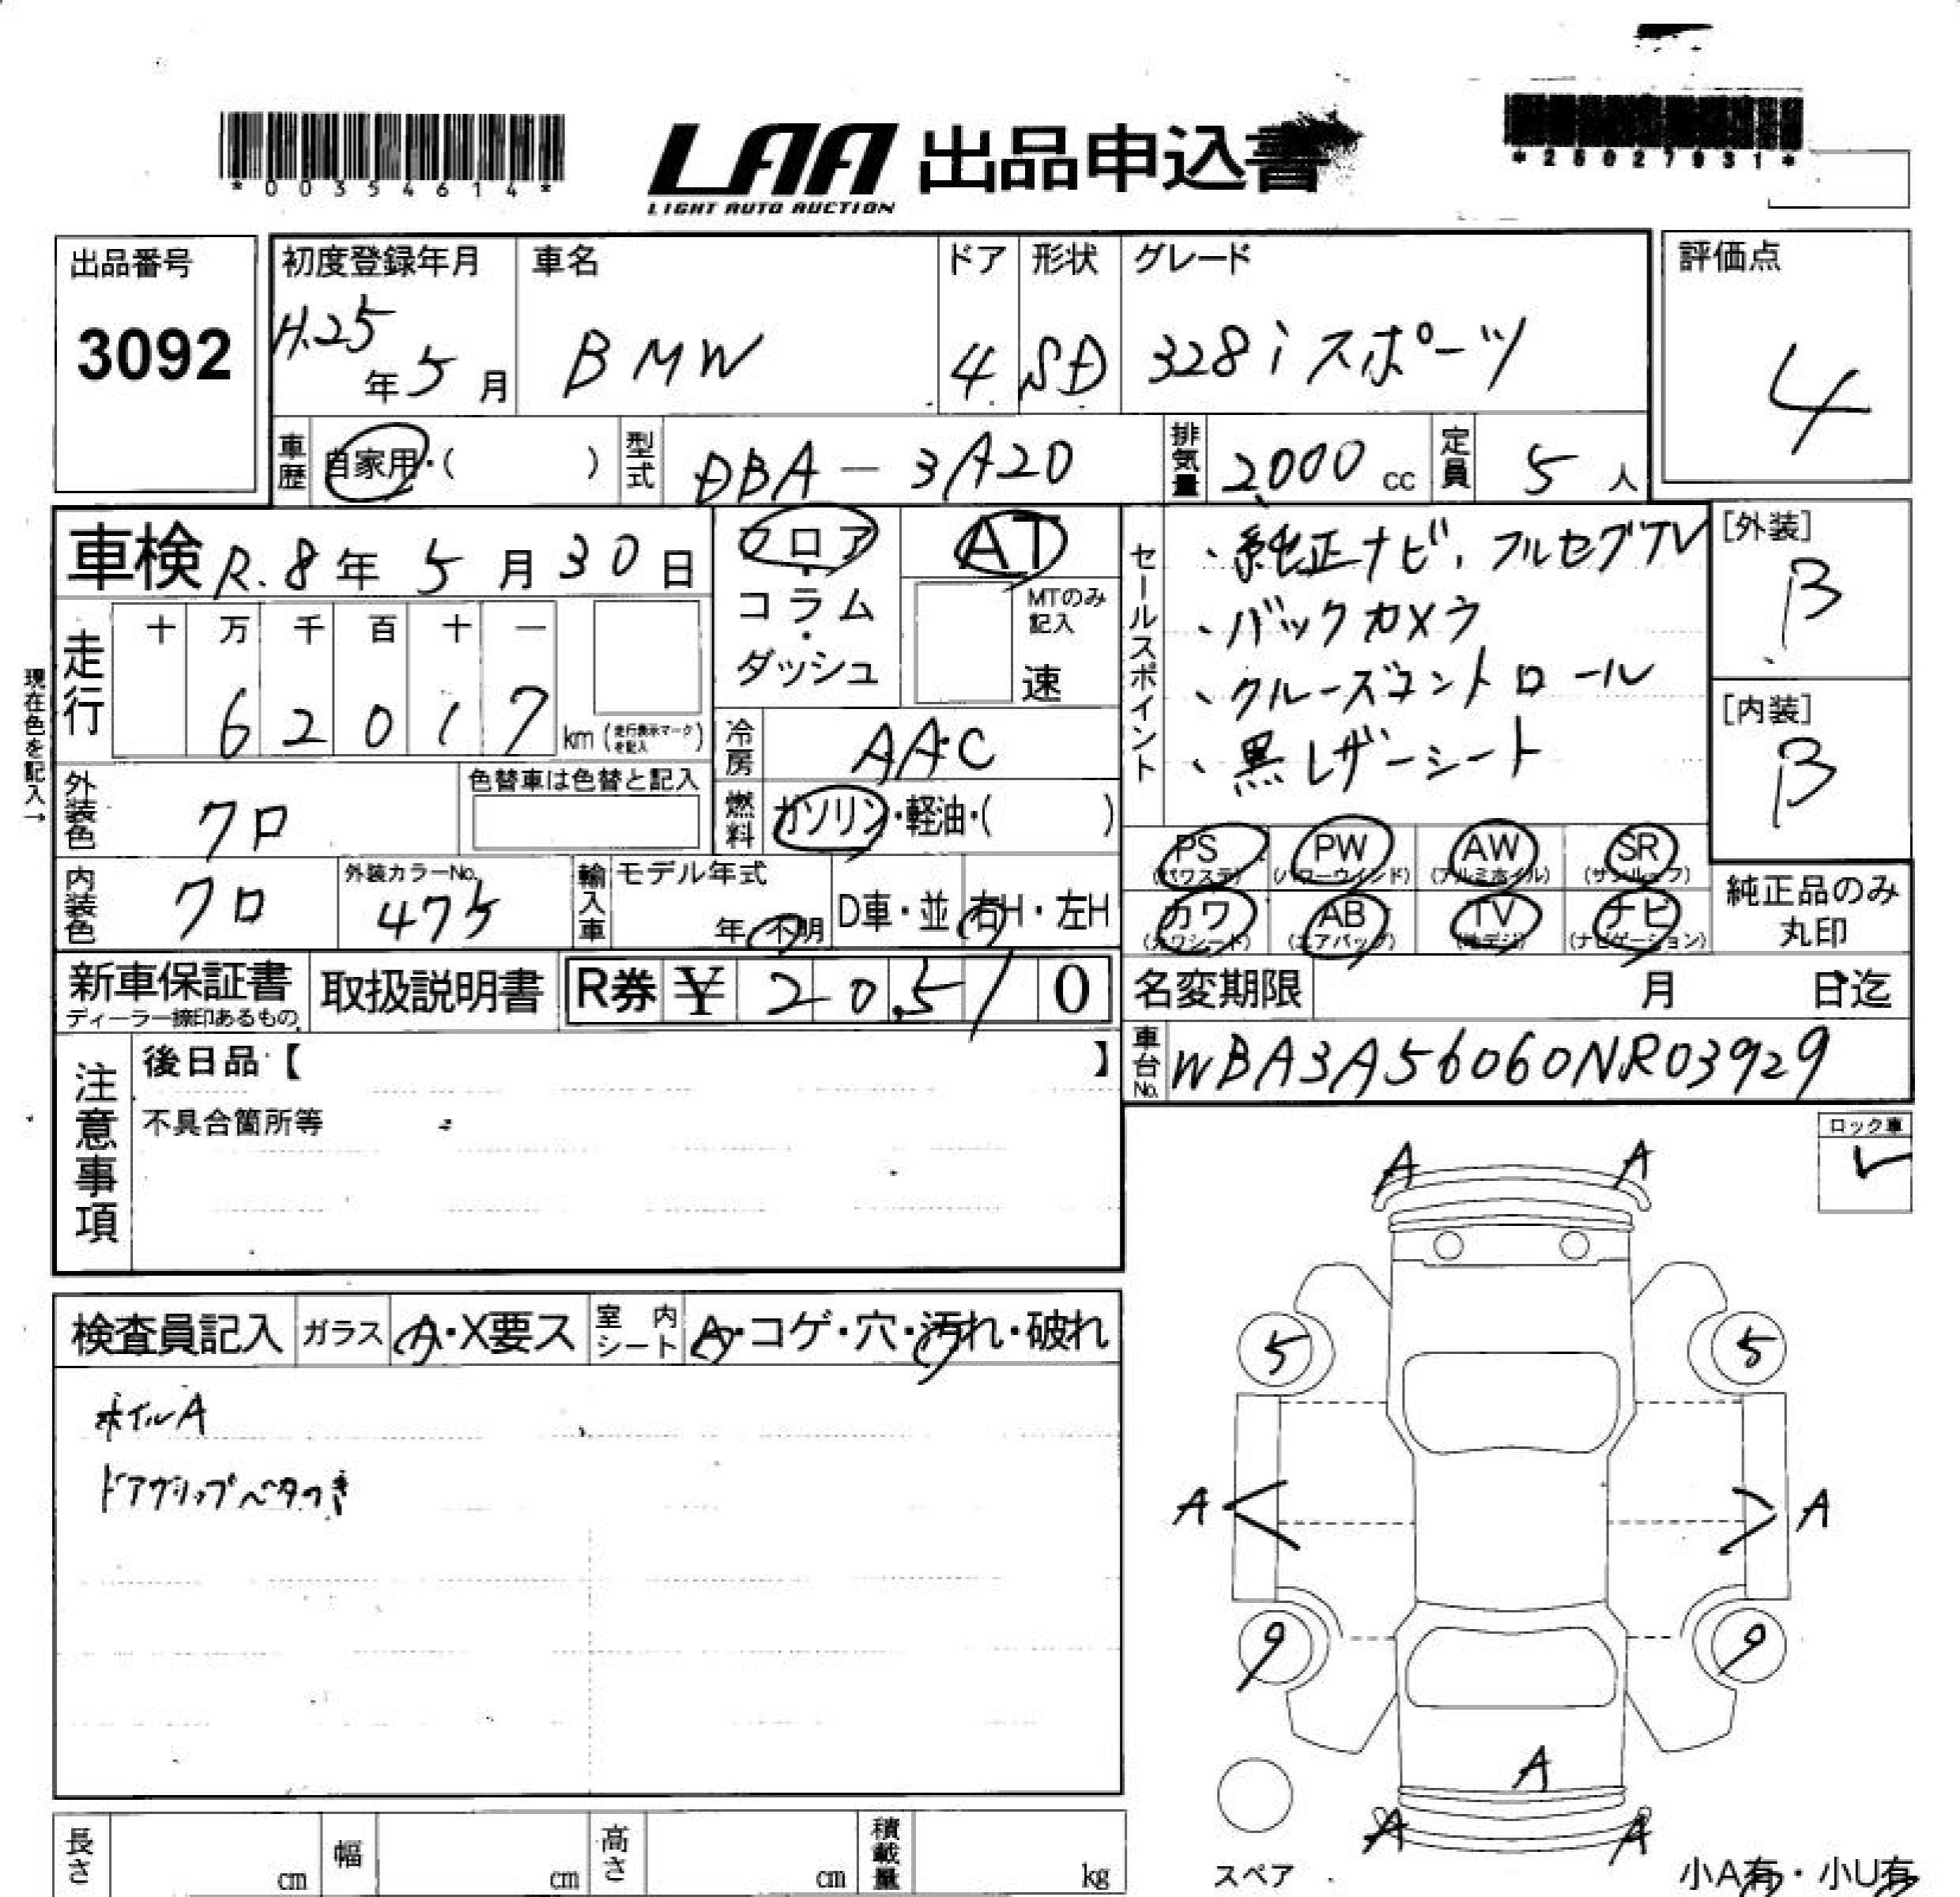 *00354614*
LAA 出品申込書
LIGHT AUTO AUCTION
*25027931*
出品番号
3092
初度登録年月
H.25年5月
車名
BMW
ドア
4
形状
SD
グレード
328iスポーツ
評価点
4
車歴 自家用・( )
型式 DBA-3A20
排気量 2,000cc
定員 5人
車検 R.8年5月30日
フロア・コラム・ダッシュ
AT
MTのみ記入
速
セールスポイント
、純正ナビ、フルセグTV
、バックカメラ
、クルーズコントロール
、黒レザーシート
[外装]
B
[内装]
B
現在色を記入→
走行
十 万 千 百 十 一
6 2 0 1 7 km (走行表示マークを記入)
冷房 AAC
外装色 クロ
色替車は色替と記入
燃料 ガソリン・軽油・( )
内装色 クロ
外装カラーNo.
475
輸入車
モデル年式
年 不明
D車・並 右H・左H
PS PW AW SR
(パワステ) (パワーウインド) (アルミホイル) (サンルーフ)
カワ AB TV ナビ
(カワシート) (エアバッグ) (地デジ) (ナビゲーション)
純正品のみ
丸印
新車保証書
ディーラー捺印あるもの
取扱説明書
R券 ¥ 20,510
名変期限 月 日迄
車台No. WBA3A56060NR03929
注意事項
後日品【 】
不具合箇所等
ロック車
✓
検査員記入
ガラス A・X要ス
室内シート A・コゲ・穴・汚れ・破れ
ホイルA
ドアグリップベタつき
A A
5 5
A A
9 9
A
A A
スペア
小A有・小U有
長さ cm
幅 cm
高さ cm
積載量 kg